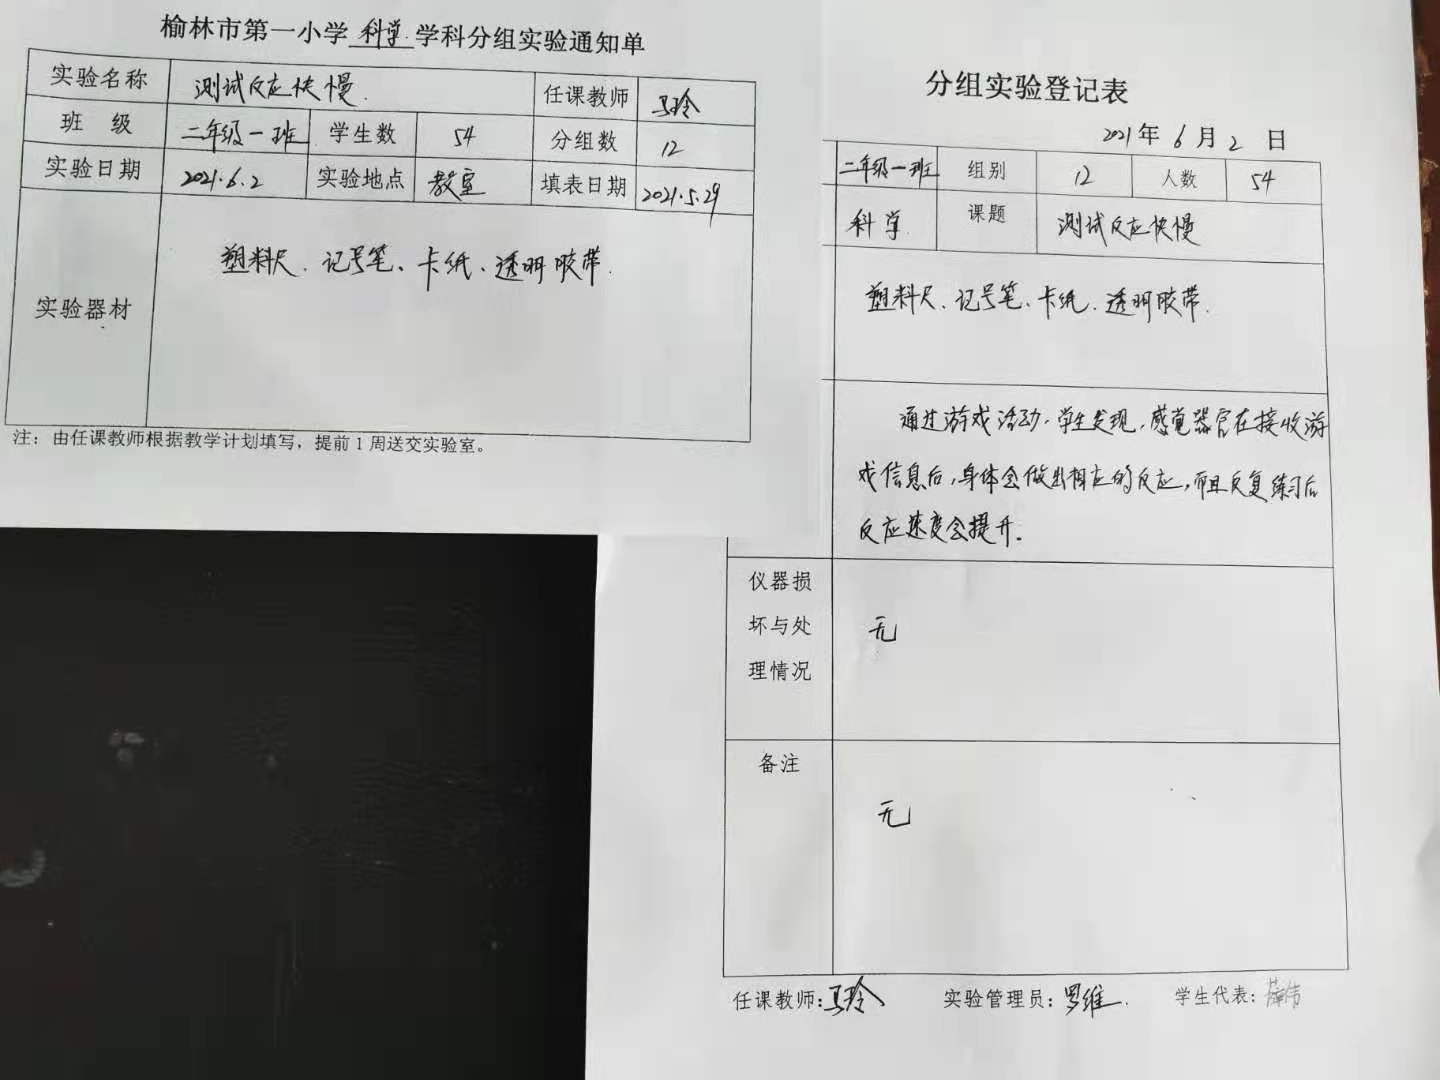 榆林市第一小学 科学 学科分组实验通知单
实验名称 测试反应快慢 任课教师 马玲
班 级 二年级一班 学生数 54 分组数 12
实验日期 2021.6.2 实验地点 教室 填表日期 2021.5.29
实验器材 塑料尺、记号笔、卡纸、透明胶带.
注：由任课教师根据教学计划填写，提前1周送交实验室。
分组实验登记表
2021 年 6 月 2 日
二年级一班 组别 12 人数 54
科学 课题 测试反应快慢
塑料尺、记号笔、卡纸、透明胶带.
通过游戏活动，学生发现，感觉器官在接收游
戏信息后，身体会做出相应的反应，而且反复练习后
反应速度会提升.
仪器损
坏与处
理情况
无
备注
无
任课教师：马玲 实验管理员：罗维. 学生代表：